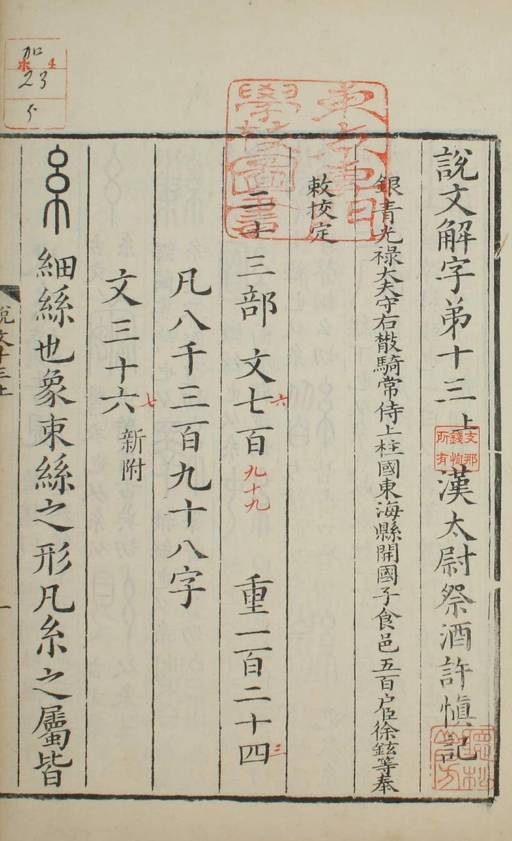 說文解字弟十三上 漢太尉祭酒許慎記
銀青光祿大夫守右散騎常侍上柱國東海縣開國子食邑五百户臣徐鉉等奉
敕校定
二十三部 文七百 六 九十九 重一百二十四 三
凡八千三百九十八字
文三十六 七 新附
糸 細絲也象束絲之形凡糸之屬皆
說文十三上
一
支那
錢恂
所有
加
4
23
5